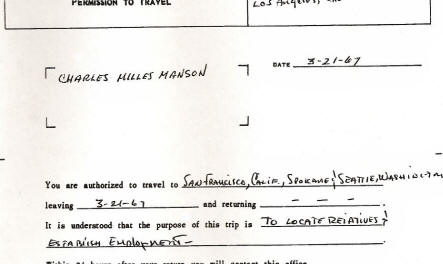 PERMISSION TO TRAVEL
LOS ANGELES,
CHARLES MILLES MANSON
DATE 3-21-67
You are authorized to travel to SAN FRANCISCO, CALIF., SPOKANE & SEATTLE, WASHINGTON
leaving 3-21-67 and returning - - - .
It is understood that the purpose of this trip is TO LOCATE RELATIVES &
ESTABLISH EMPLOYMENT- .